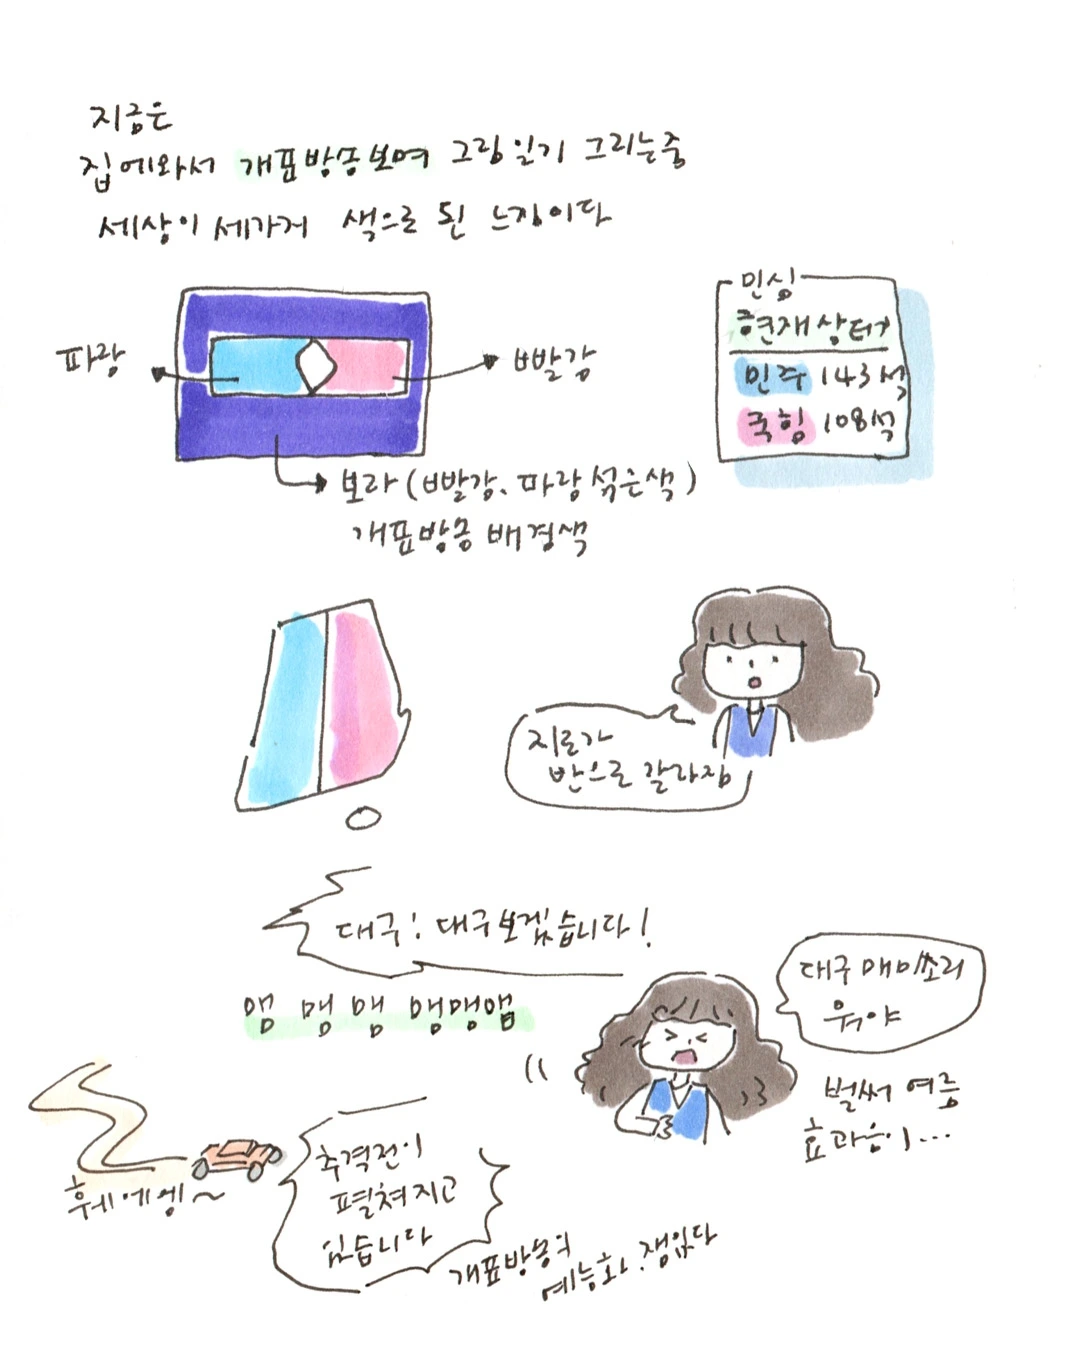 지금은
집에와서 개표방송보며 그림일기 그리는중
세상이 세가지 색으로 된 느낌이다
파랑
빨강
보라(빨강, 파랑 섞은색)
개표방송 배경색
민심
현재상태
민주 143석
국힘 108석
지도가
반으로 갈라짐
대구! 대구보겠습니다!
맴 맹 맴 맹맹맴
대구 매미소리
뭐야
벌써 여름
효과음이...
훼에엥~
추격전이
펼쳐지고
있습니다
개표방송의
예능화. 잼있다